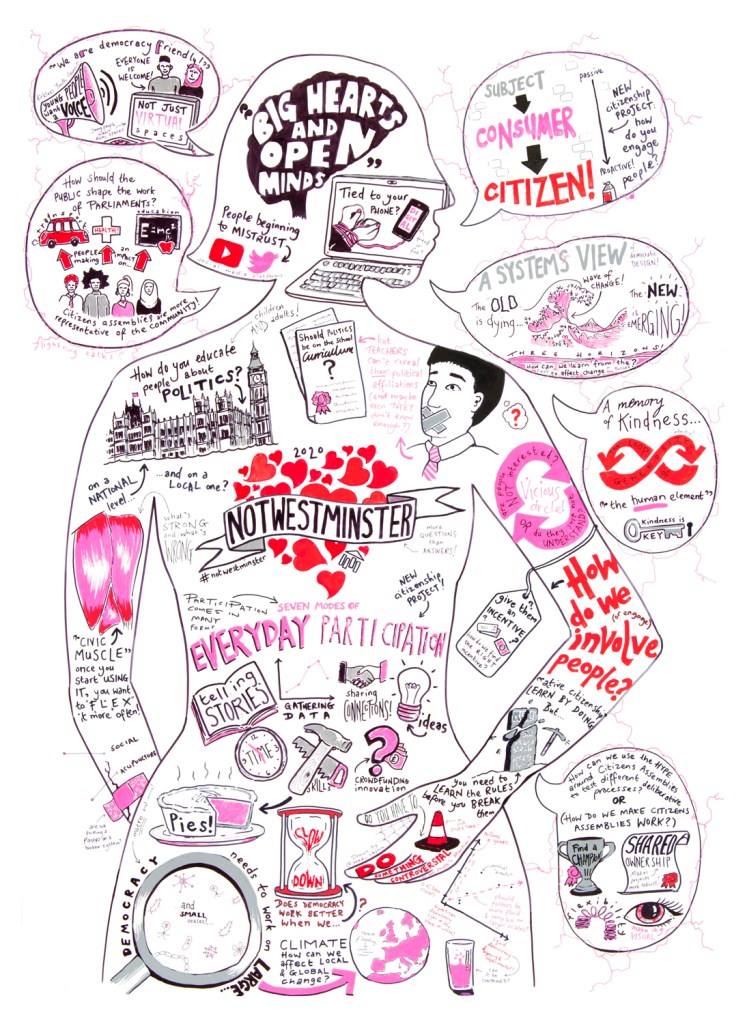 "We are democracy friendly!"
EVERYONE
IS
WELCOME!
YOUNG PEOPLE
want a
VOICE
NOT JUST
VIRTUAL
spaces
How should the
PUBLIC shape the work
of PARLIAMENTS?
HEALTH
education
E=mc²
PEOPLE
making
an
IMPACT
on...
Citizens assemblies are more
representative of the COMMUNITY!
"BIG HEARTS
AND
OPEN
MINDS"
Tied to your
PHONE?
DIGITAL
People beginning
to MISTRUST
social media platforms
SUBJECT
CONSUMER
CITIZEN!
passive
PROACTIVE!
NEW
citizenship
PROJECT:
how
do you
engage
people?
A SYSTEMS VIEW
of democratic
DESIGN!
wave of
CHANGE!
The OLD
is dying...
The NEW
is EMERGING!
THREE HORIZONS!
How can we learn from the?
to affect change
A memory
of Kindness...
"the human element"
Kindness is
KEY
children
AND adults!
How do you educate
people about
POLITICS?
on a
NATIONAL
level...
...and on a
LOCAL one?
Should POLITICS
be on the school
Curriculum
?
but
TEACHERS
can't reveal
their political
affiliations
(and maybe
even THEY
don't know
enough?)
?
are people
NOT interested?
Or do they not
UNDERSTAND?
Vicious
circle!
2020
NOTWESTMINSTER
#notwestminster
what's
STRONG
and what's
WRONG
more
QUESTIONS
than
ANSWERS!
NEW
citizenship
PROJECT!
PARTICIPATION
COMES IN
MANY
FORMS
SEVEN MODES OF
EVERYDAY PARTICIPATION
give them
an
INCENTIVE
?
How do we find
the RIGHT
incentive?
HOW
do we
(or engage)
involve
people?
"CIVIC
MUSCLE"
once you
start USING
IT, you want
to "FLEX"
it more often!
telling
STORIES
GATHERING
DATA
sharing
CONNECTIONS!
ideas
TIME
SKILLS
CROWDFUNDING
innovation
LEARN BY DOING
But...
you need to
LEARN THE RULES
before you BREAK
them
SOCIAL
ACUPUNCTURE
Pies!
SLOW
DOWN!
DO YOU HAVE TO
DO
SOMETHING
CONTROVERSIAL
?
DOES DEMOCRACY
WORK BETTER
when we...
DEMOCRACY
needs to work on
LARGE...
and
SMALL
scales!
CLIMATE
How can we
affect LOCAL
& GLOBAL
change?
How can we use the HYPE
around Citizens Assemblies
to test different deliberative
processes?
OR
(HOW DO WE MAKE CITIZENS
ASSEMBLIES WORK?)
Find a
CHAMPION
SHARED
OWNERSHIP
flexibility